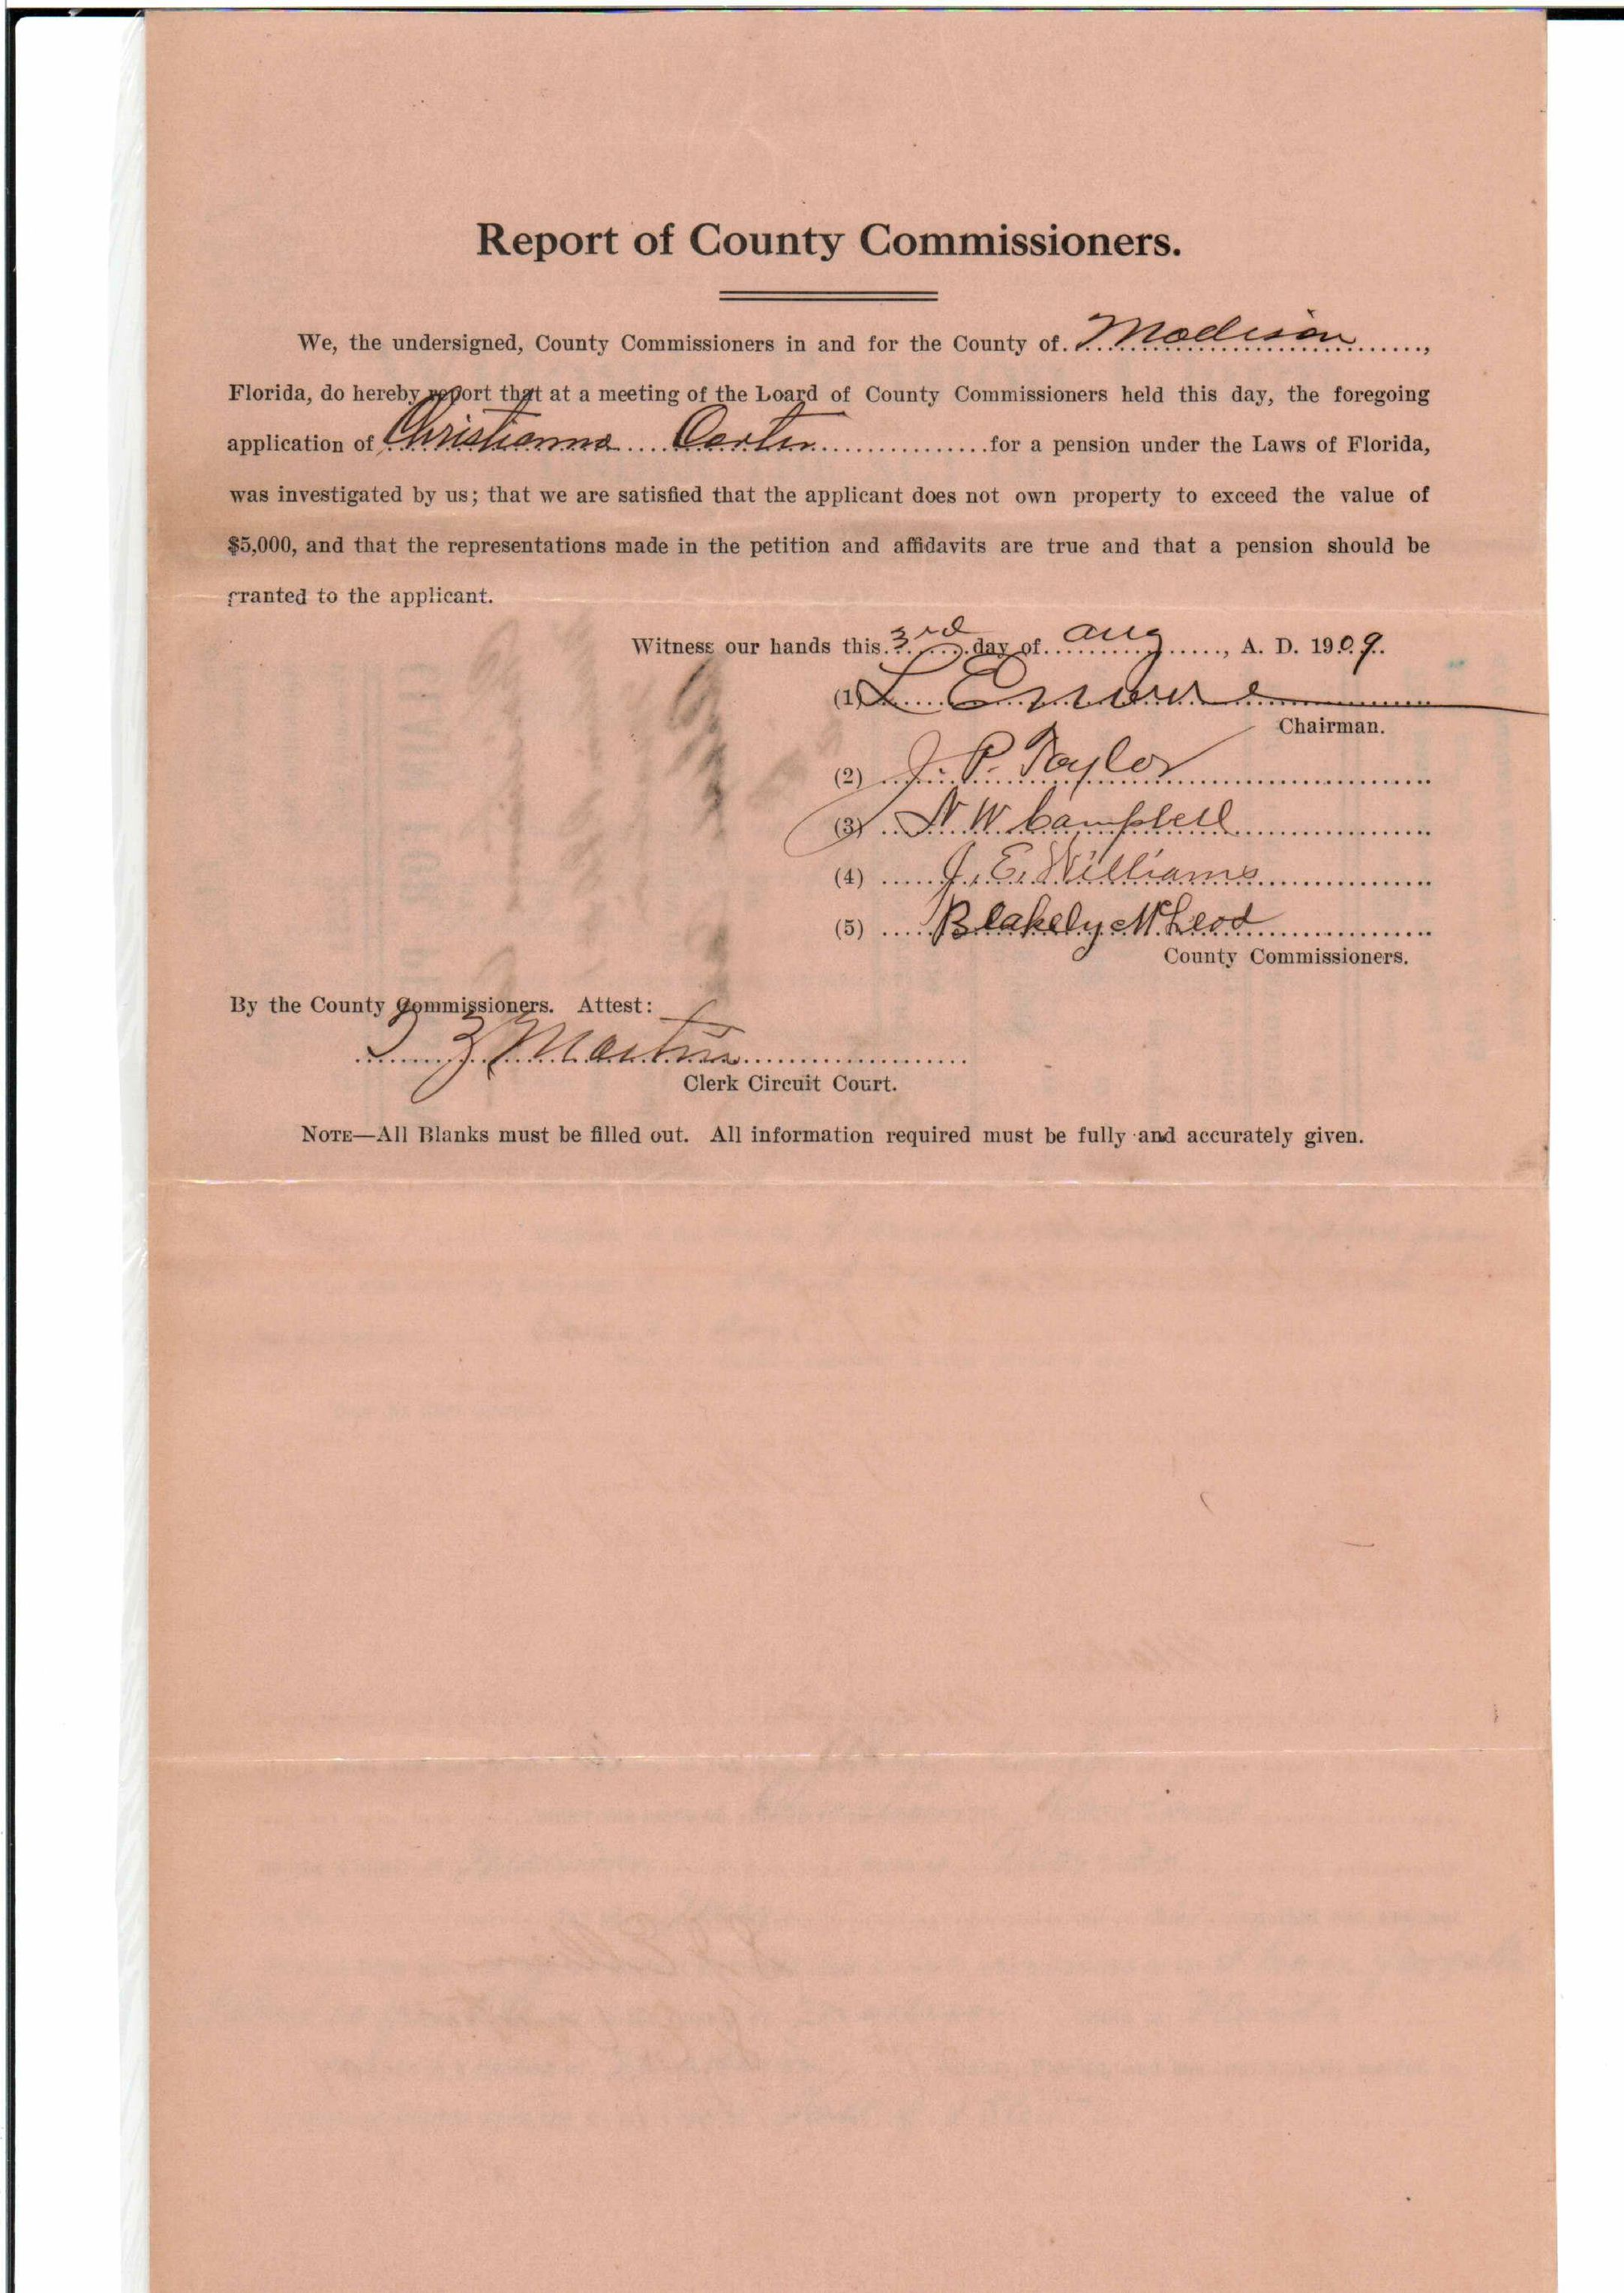 Report of County Commissioners.
We, the undersigned, County Commissioners in and for the County of Madison,
Florida, do hereby report that at a meeting of the Loard of County Commissioners held this day, the foregoing
application of Christianna Carter for a pension under the Laws of Florida,
was investigated by us; that we are satisfied that the applicant does not own property to exceed the value of
$5,000, and that the representations made in the petition and affidavits are true and that a pension should be
granted to the applicant.
Witness our hands this 3rd day of Aug, A. D. 1909.
(1) L
Chairman.
(2) J. P. Taylor
(3) N W Campbell
(4) J. E. Williams
(5) Blakely McLeod
County Commissioners.
By the County Commissioners. Attest:
Martin
Clerk Circuit Court.
NOTE—All Blanks must be filled out. All information required must be fully and accurately given.